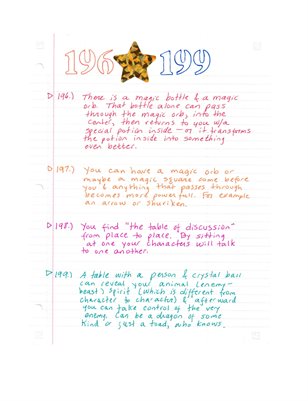 196 199
▷ 196.) There is a magic bottle & a magic
orb. That bottle alone can pass
through the magic orb, into the
center, then returns to you w/a
special potion inside — or it transforms
the potion inside into something
even better.
▷ 197.) You can have a magic orb or
maybe a magic square come before
you & anything that passes through
becomes more powerfull. For example
an arrow or shuriken.
▷ 198.) You find "the table of discussion"
from place to place. By sitting
at one your characters will talk
to one another.
▷ 199.) A table with a person & crystal ball
can reveal your animal (enemy-
beast) spirit (which is different from
character to character) & afterward
you can take control of the very
enemy. Can be a dragon of some
kind or just a toad, who knows.